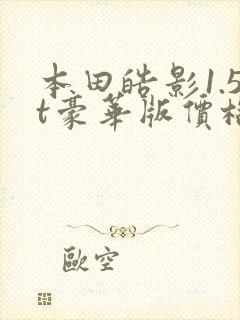 本田皓影1.5
t豪華版價格
歐空